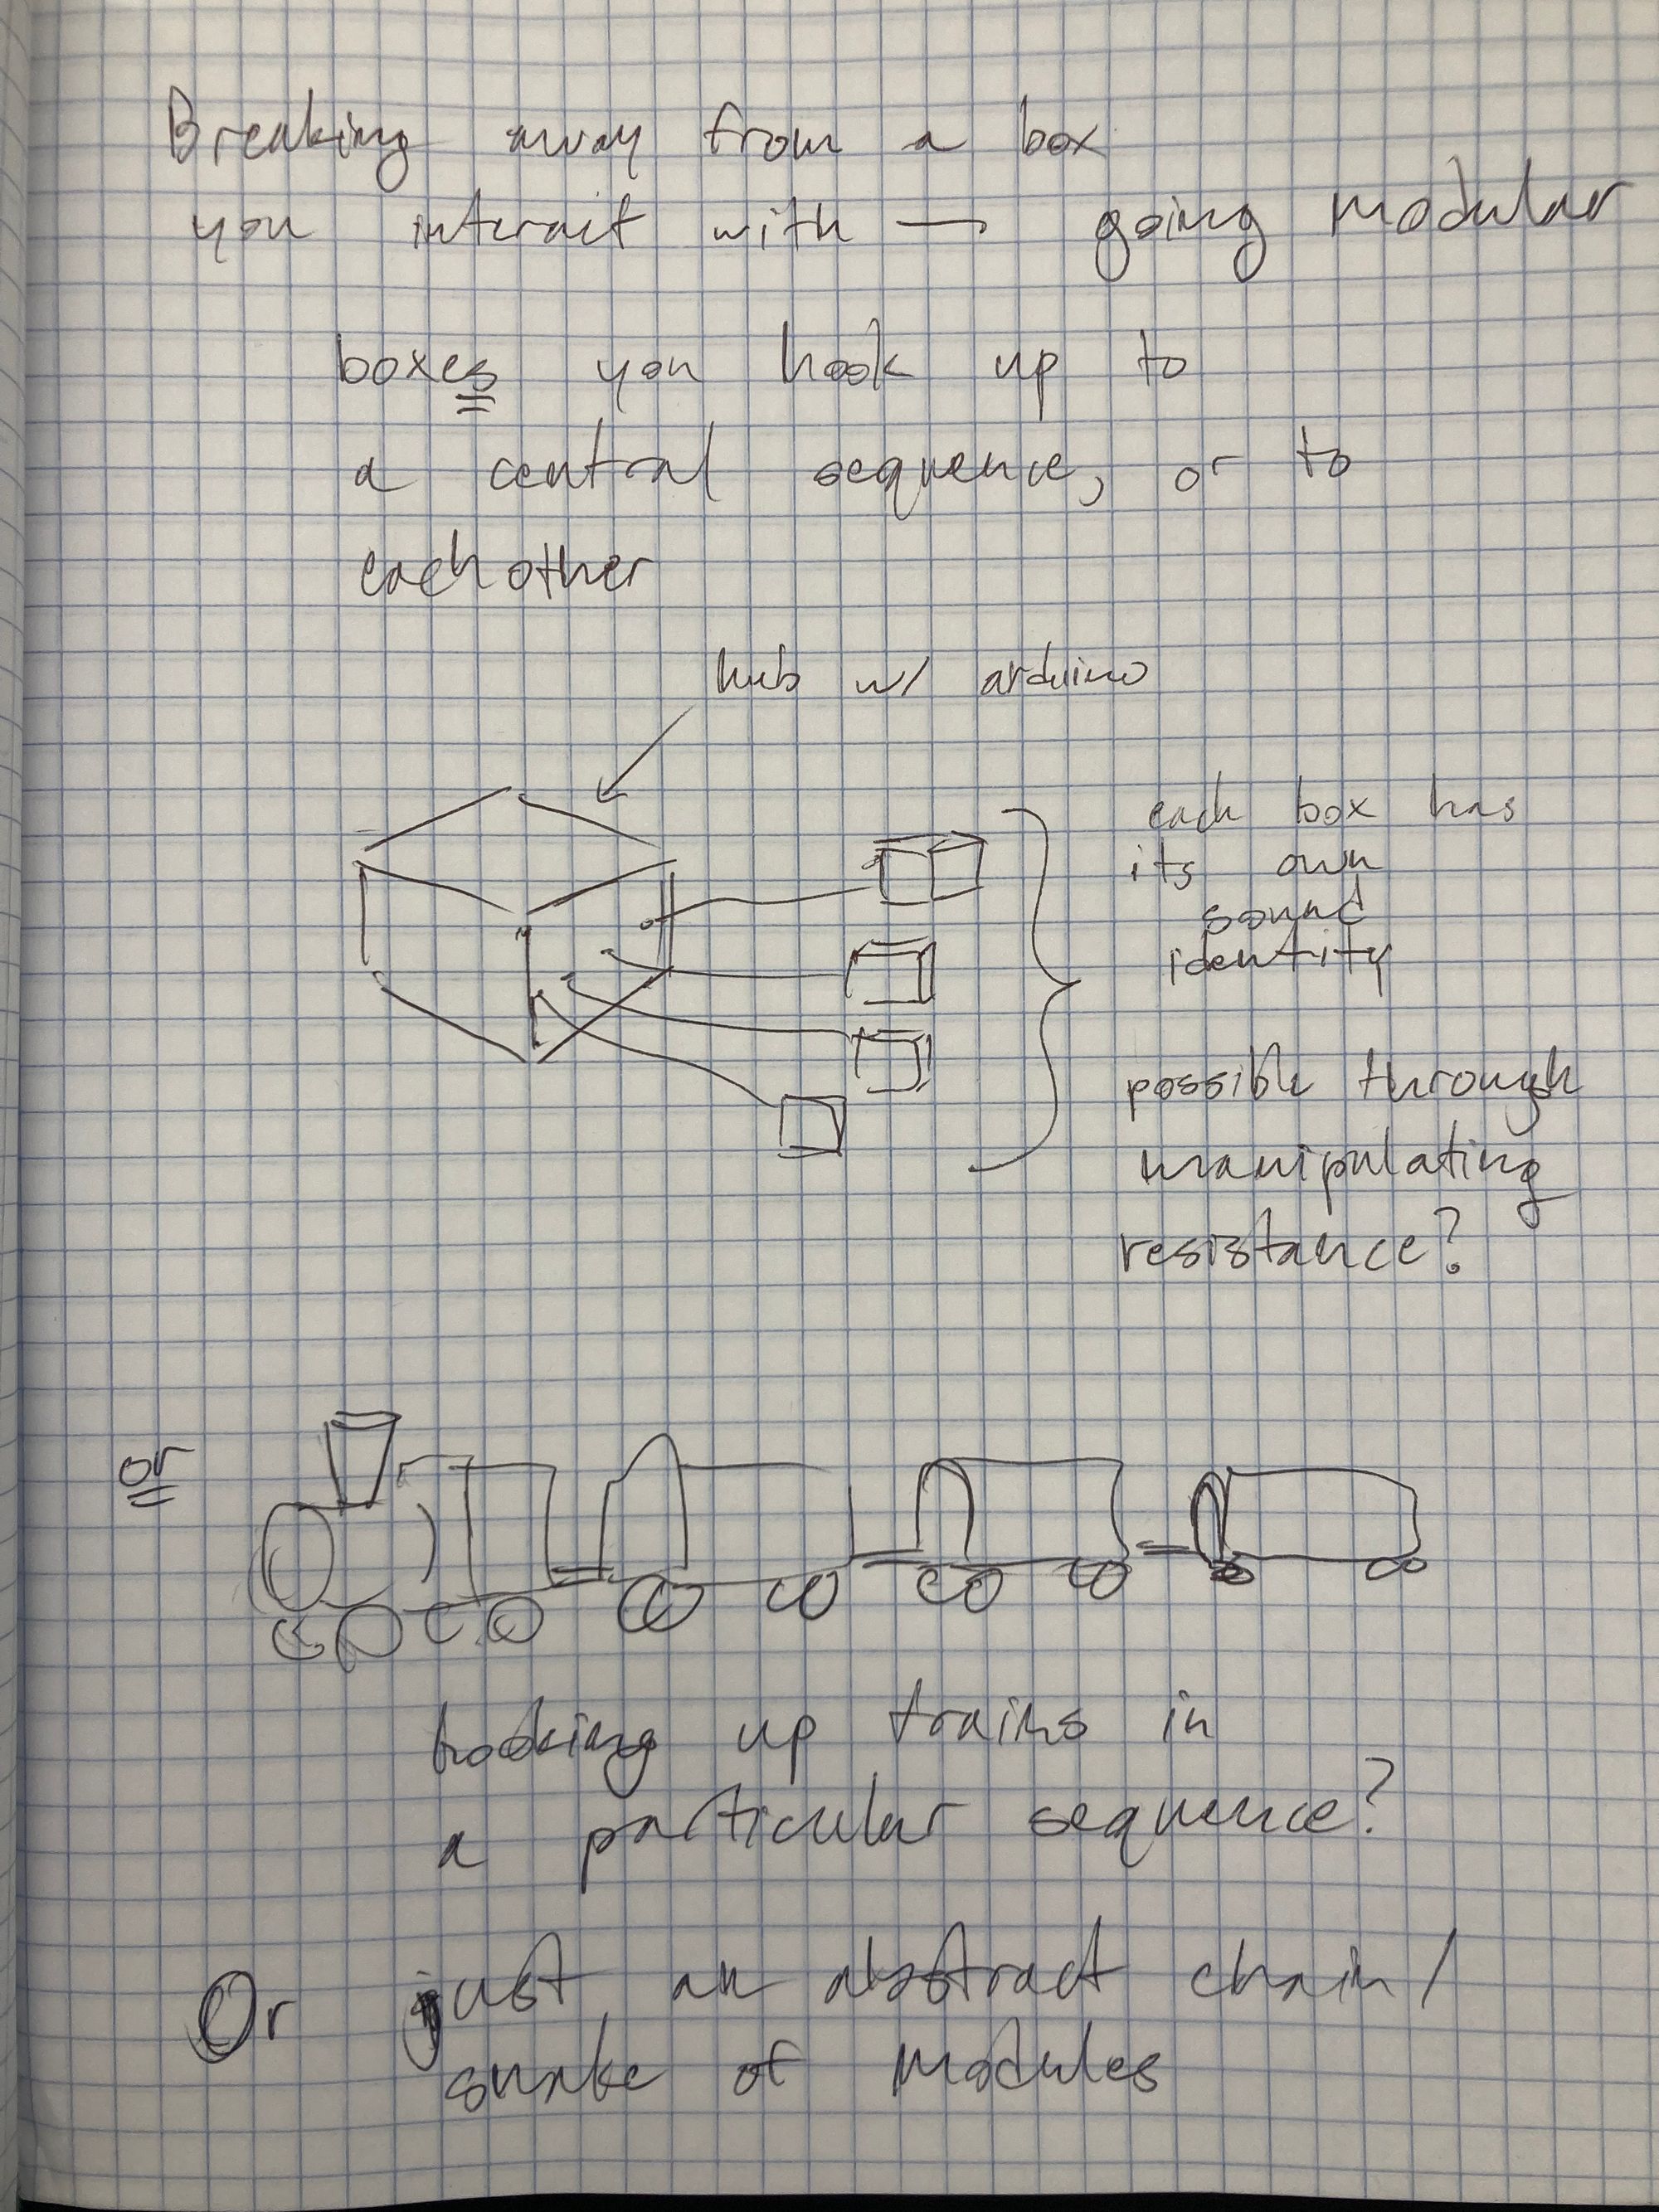 Breaking away from a box
you interact with → going modular
boxes you hook up to
a central sequence, or to
eachother
hub w/ arduino
each box has
its own
sound
identity
possible through
manipulating
resistance?
or
hooking up trains in
a particular sequence?
Or just an abstract chain/
snake of modules